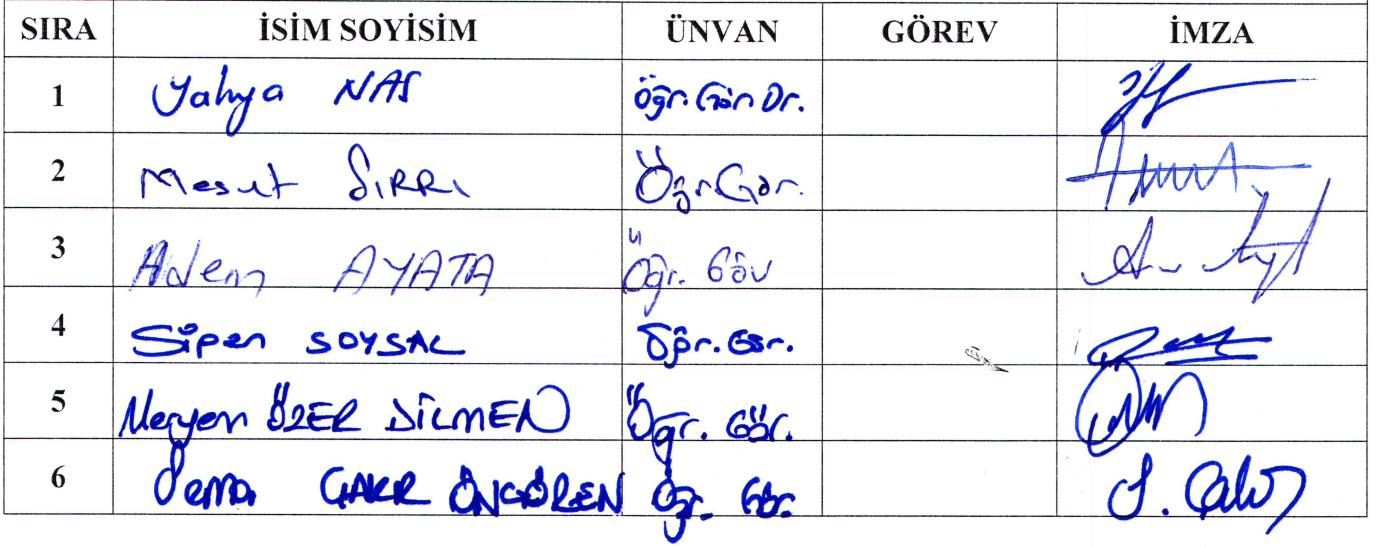 SIRA İSİM SOYİSİM ÜNVAN GÖREV İMZA
1 Yahya NAS Öğr. Gör Dr.
2 Mesut SIRRI Öğr. Gör.
3 Adem AYATA Öğr. Gör
4 Sipan SOYSAL Öğr. Gör.
5 Meryem ÖZER DİLMEN Öğr. Gör.
6 Sema ÇAKIR ÖNGÖREN Öğr. Gör. S. Çakır